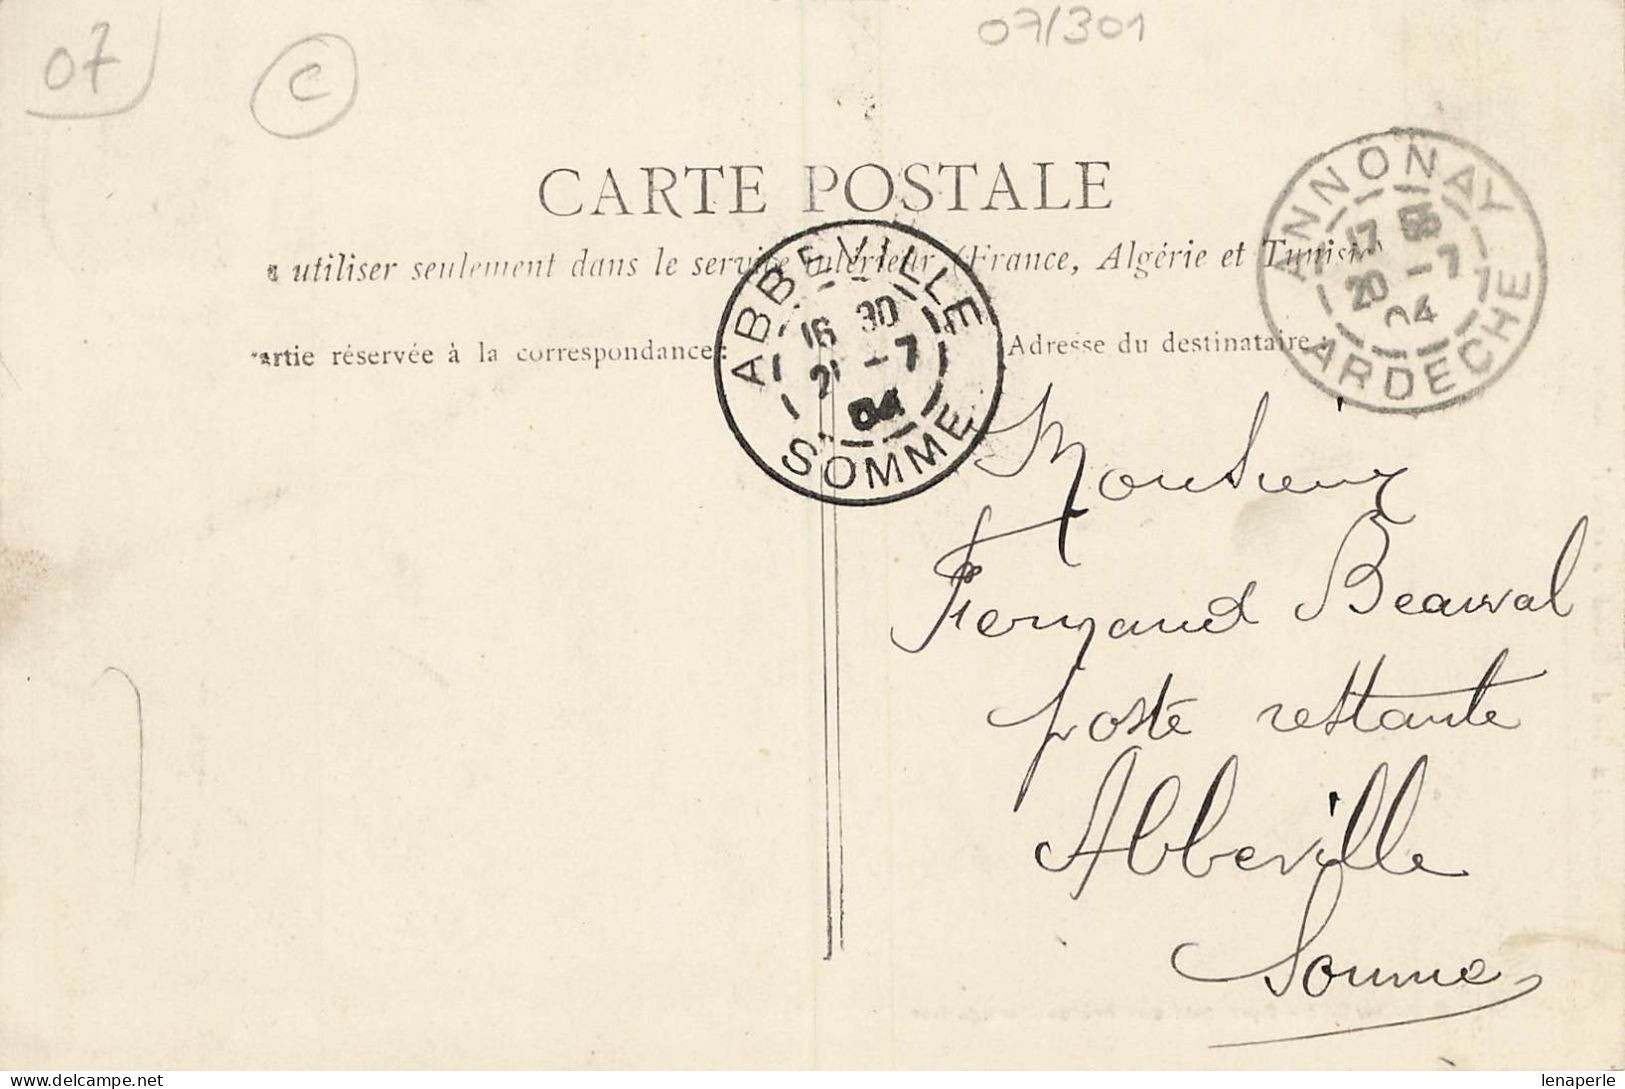 07
C
07/301
CARTE POSTALE
A utiliser seulement dans le service intérieur (France, Algérie et Tunisie)
Partie réservée à la correspondance:
Adresse du destinataire:
ABBEVILLE
16 30
21 -7
04
SOMME
ANNONAY
17
20 -7
04
ARDECHE
Monsieur
Fernand Beauval
poste restante
Abbeville
Somme
delcampe.net
lenaperle